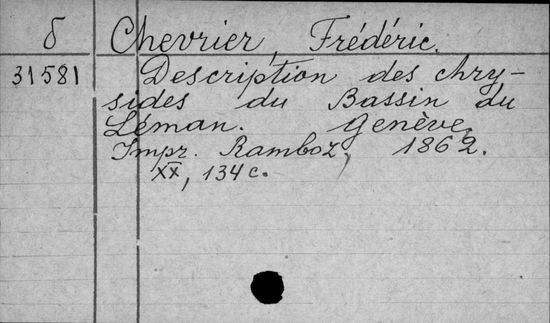 б Chevrier, Frédéric.
31581 Description des chry-
sides du Bassin du
Léman. Genève,
Impr. Ramboz, 1862.
XX, 134 с.